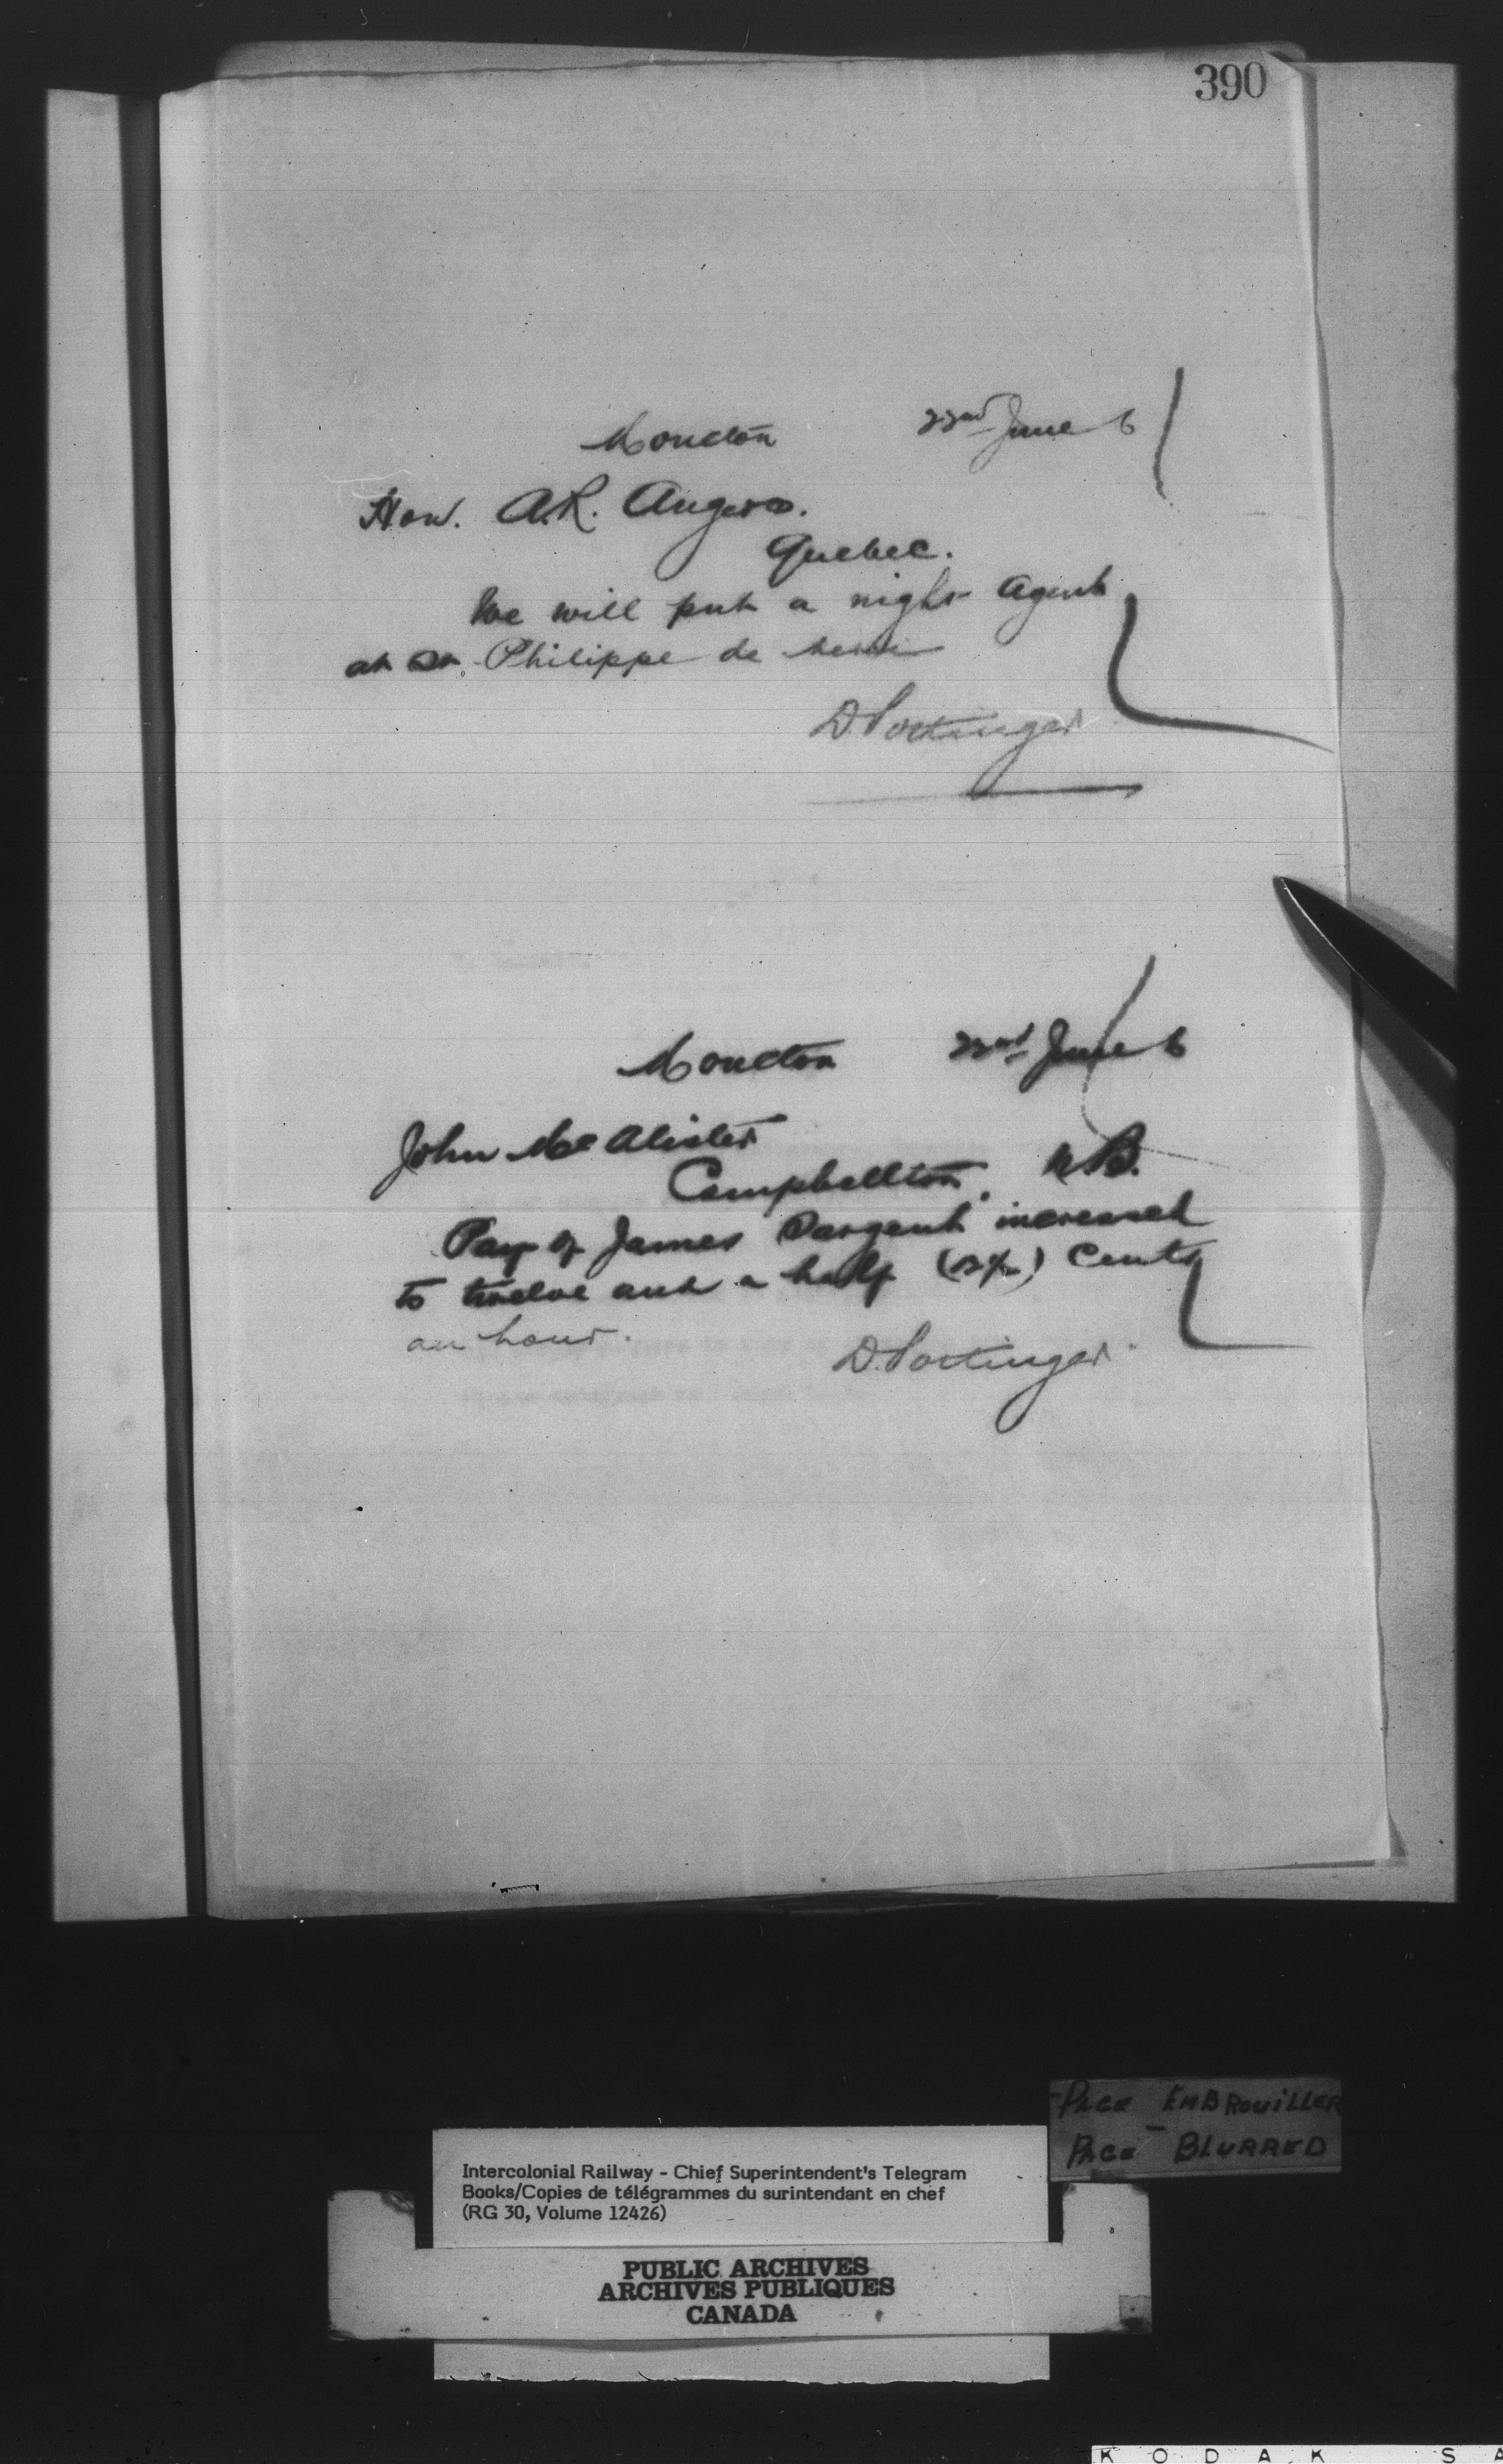 390
Moncton 22nd June 6
Hon. A.R. Angers.
Quebec.
We will put a night Agent
at St. Philippe de Neri
D. Pottinger
Moncton 22nd June 6
John McAlister
Campbellton, N.B.
Pay of James Sargent increased
to twelve and a half (12½) Cents
an hour.
D. Pottinger.
PAGE EMBROUILLER
PAGE BLURRED
Intercolonial Railway - Chief Superintendent's Telegram
Books/Copies de télégrammes du surintendant en chef
(RG 30, Volume 12426)
PUBLIC ARCHIVES
ARCHIVES PUBLIQUES
CANADA
K O D A K S A